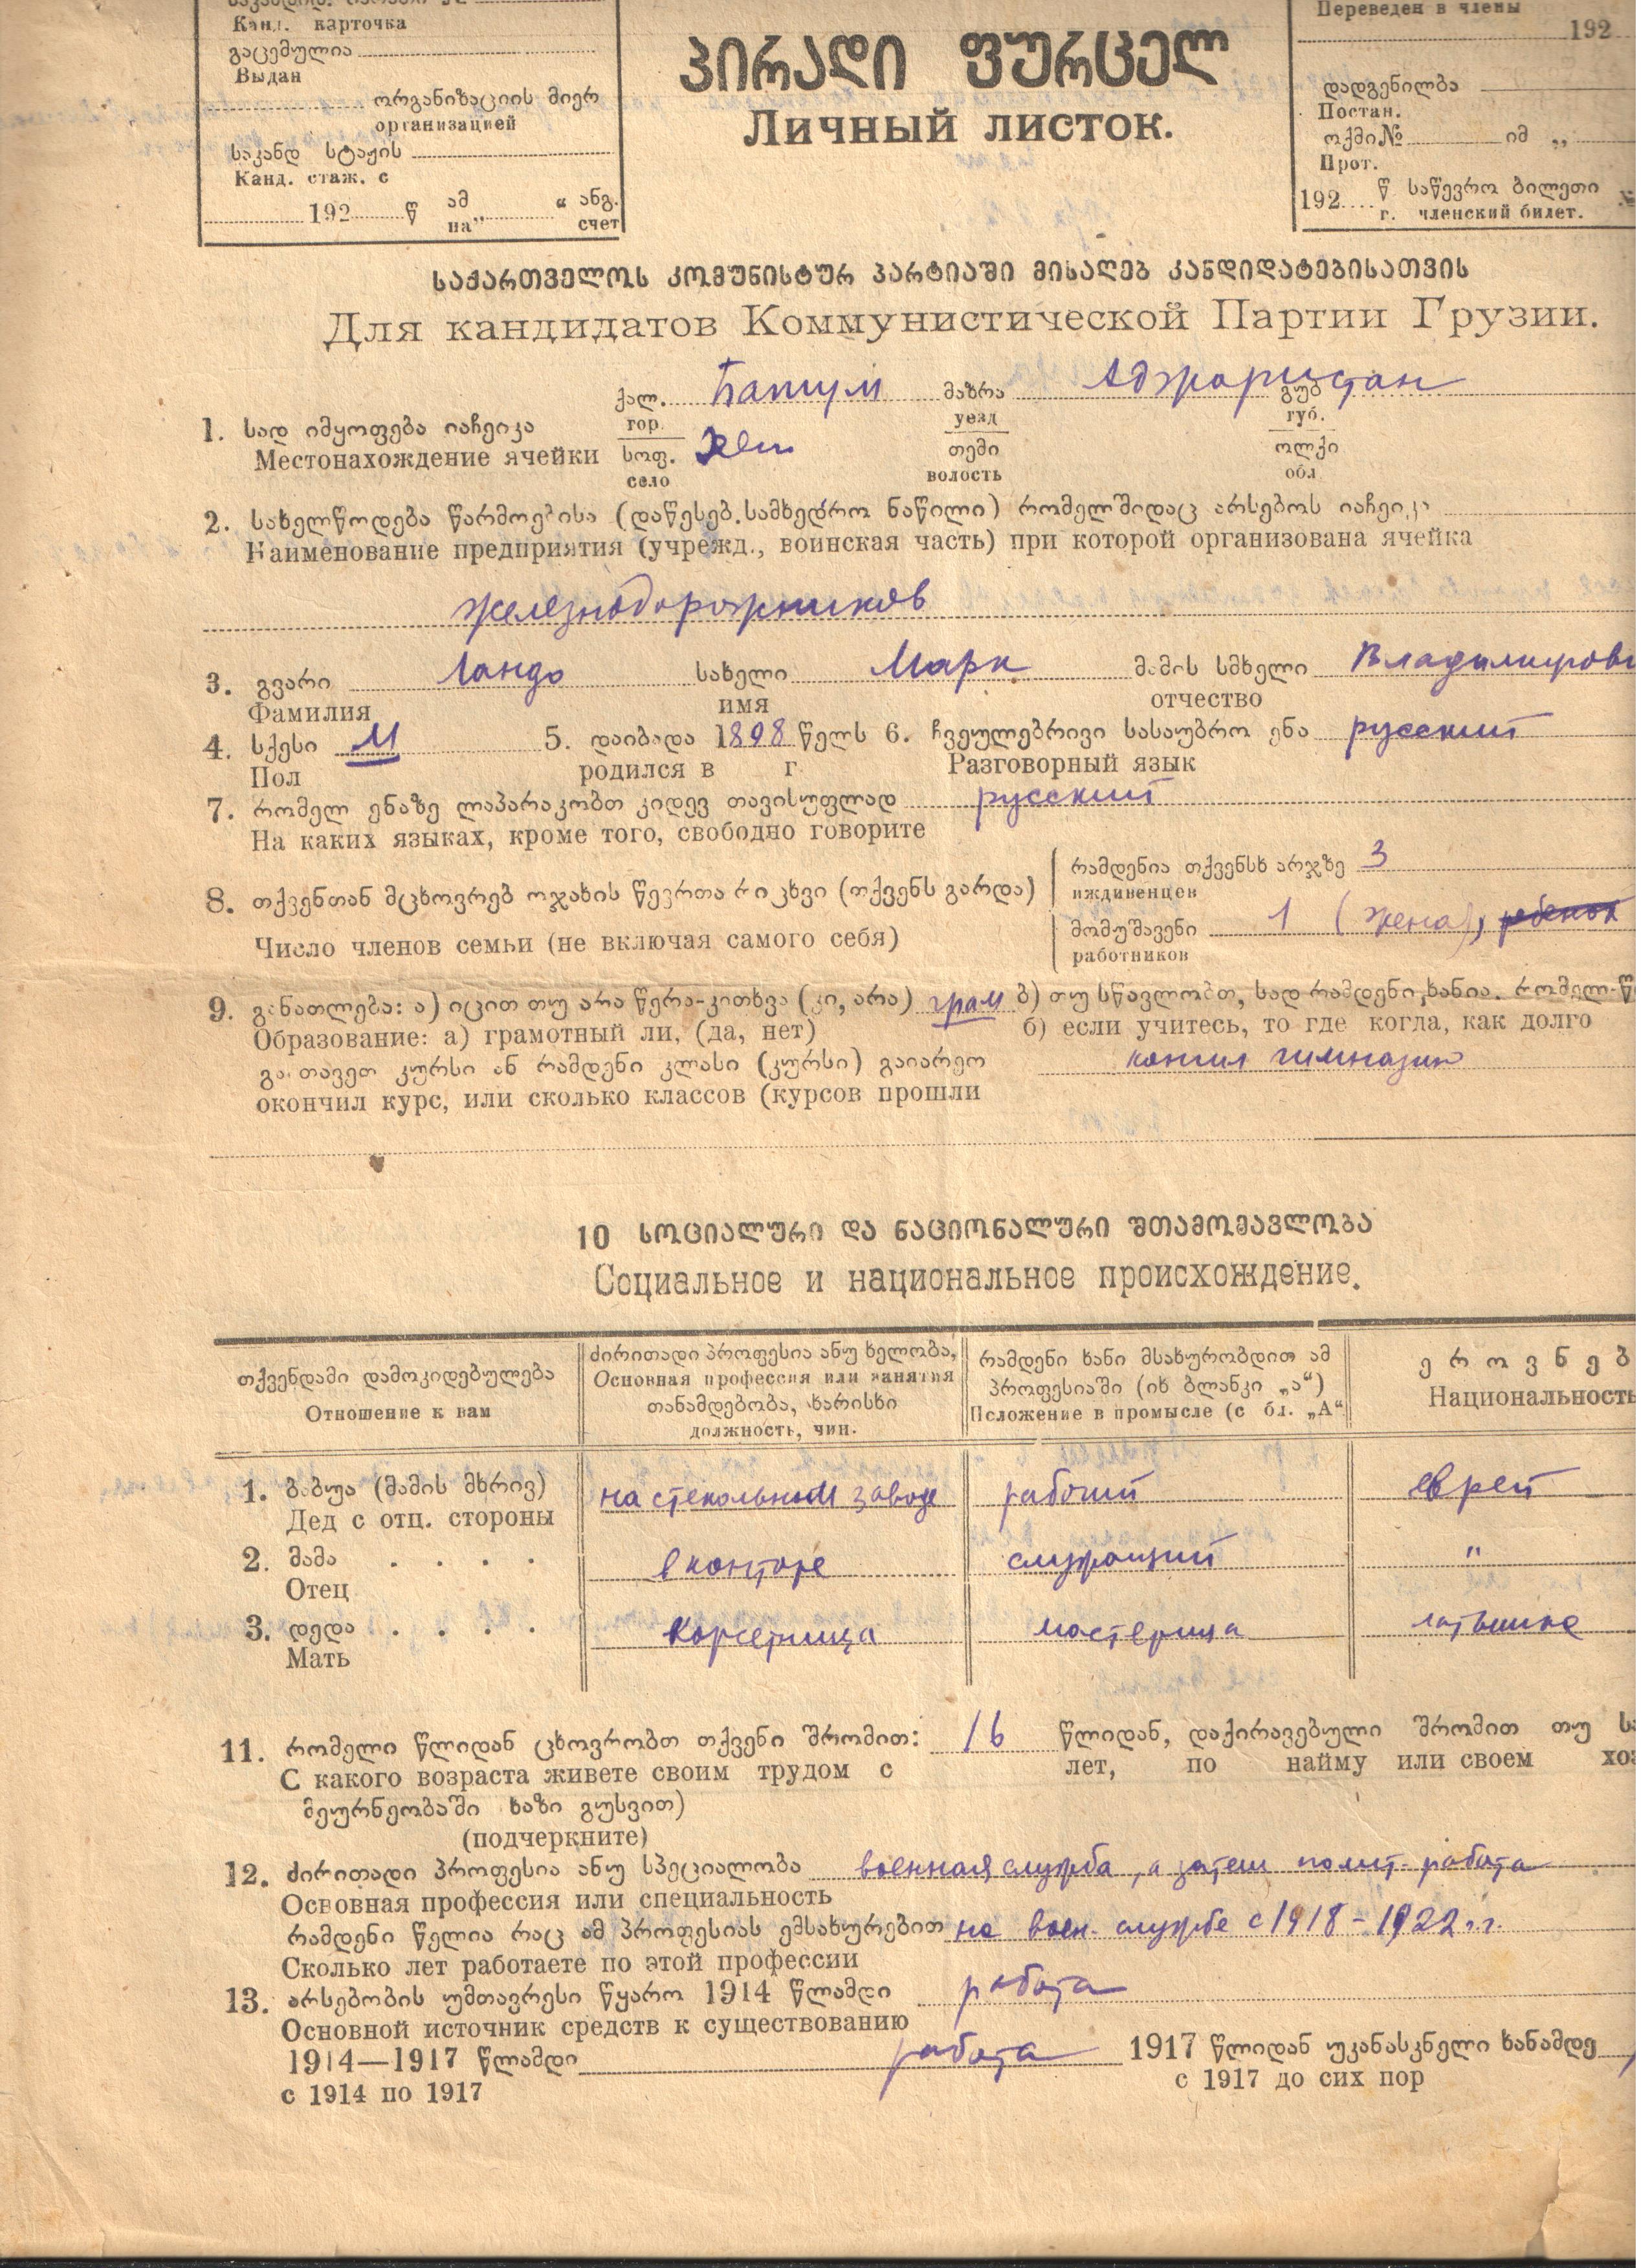 Канд. карточка
გაცემულია
Выдан
ორგანიზაციის მიერ
организацией
საკანდ სტაჟის
Канд. стаж. с
192 წ ამ “ ანგ.
на” счет
პირადი ფურცელ
Личный листок.
Переведен в члены
192
დადგენილბა
Постан.
ოქმი № იმ „
Прот.
192 წ საწევრო ბილეთი №
г. членский билет.
საქართველოს კომუნისტურ პარტიაში მისაღებ კანდიდატებისათვის
Для кандидатов Коммунистической Партии Грузии.
ქალ. Батум მაზრა Аджаристан გუბ
1. სად იმყოფება იაჩეიკა гор. уезд губ.
Местонахождение ячейки სოფ. თემი ოლქი
село волость обл
2. სახელწოდება წარმოებისა (დაწესებ. სამხედრო ნაწილი) რომელშიდაც არსებოს იაჩეიკა
Наименование предприятия (учрежд., воинская часть) при которой организована ячейка
железнодорожников
3. გვარი Ландо სახელი Марк მამის სმხელი Владимирови
Фамилия имя отчество
4. სქესი М 5. დაიბადა 1898 წელს 6. ჩვეულებრივი სასაუბრო ენა русский
Пол родился в г Разговорный язык
7. რომელ ენაზე ლაპარაკობთ კიდევ თავისუფლად русский
На каких языках, кроме того, свободно говорите
რამდენია თქვენსხ არჯზე 3
8. თქვენთან მცხოვრებ ოჯახის წევრთა რიცხვი (თქვენს გარდა) иждивенцев
მომუშავენი 1 (жена), ребенок
Число членов семьи (не включая самого себя) работников
9. განათლება: ა) იცით თუ არა წერა-კითხვა (კი, არა) грам ბ) თუ სწავლობთ, სად რამდენი ხანია. რომელ წ
Образование: а) грамотный ли, (да, нет) б) если учитесь, то где когда, как долго
გაათავეთ კურსი ან რამდენი კლასი (კურსი) გაიარეთ кончил гимназию
окончил курс, или сколько классов (курсов прошли
10 სოციალური და ნაციონალური შთამომავლობა
Социальное и национальное происхождение.
თქვენდამი დამოკიდებულება
Отношение к вам
ძირითადი პროფესია ანუ ხელობა,
Основная профессия или занятия
თანამდებობა, ხარისხი
должность, чин.
რამდენი ხანი მსახურობდით ამ
პროფესიაში (იხ ბლანკი „ა“)
Положение в промысле (с бл. „А“
ეროვნებ
Национальность
1. ბაბუა (მამის მხრივ) на стекольном заводе рабочий еврей
Дед с отц. стороны
2. მამა . . . . в конторе служащий "
Отец
3. დედა . . . . Корсетница мастерица латышка
Мать
11. რომელი წლიდან ცხოვრობთ თქვენი შრომით: 16 წლიდან, დაქირავებული შრომით თუ სა
С какого возраста живете своим трудом с лет, по найму или своем хоз
მეურნეობაში ხაზი გუსვით)
(подчеркните)
12. ძირითადი პროფესია ანუ სპეციალობა военная служба, а затем полит. работа
Основная профессия или специальность
რამდენი წელია რაც ამ პროფესიას ემსახურებით на воен. службе с 1918 – 1922 г.г.
Сколько лет работаете по этой профессии
13. არსებობის უმთავრესი წყარო 1914 წლამდი работа
Основной источник средств к существованию
1914—1917 წლამდი работа 1917 წლიდან უკანასკნელი ხანამდე
с 1914 по 1917 с 1917 до сих пор